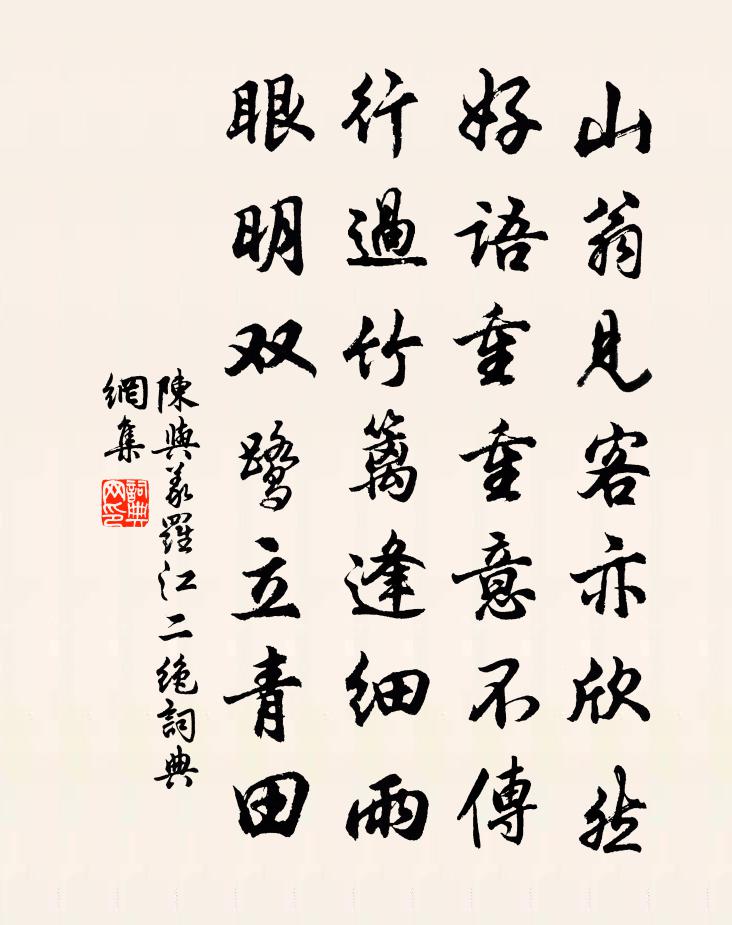 山翁見客亦欣然
好語重重意不傳
行過竹籬逢細雨
眼明双鷺立青田
陳與義羅江二絶詞典
網集
詞典
网印